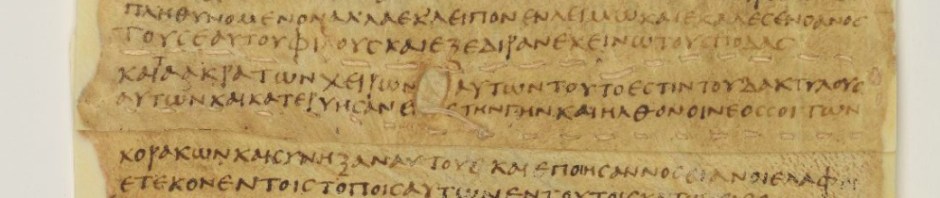 ΠΛΗΘΥΝΟΜΕΝΟΝΑΛΛΑΕΚΛΕΙΠΟΝΕΝΛΕΙΜΩΚΑΙΕΚΑΛΕϹΕΝΟΘΑΝΟϹ
ΤΟΥϹΕΑΥΤΟΥΦΙΛΟΥϹΚΑΙΕΞΕΔΙΡΑΝΕΚΕΙΝΩΤΟΥϹΠΟΔΑϹ
ΚΑΙΤΑΑΚΡΑΤΩΝΧΕΙΡΩΝ ΑΥΤΩΝΤΟΥΤΟΕϹΤΙΝΤΟΥΔΑΚΤΥΛΟΥϹ
ΑΥΤΩΝΚΑΙΚΑΤΕΡΥΗϹΑΝΕΙ ϹΤΗΝΓΗΝΚΑΙΗΛΘΟΝΟΙΝΕΟϹϹΟΙΤΩΝ
ΚΟΡΑΚΩΝΚΑΙϹΥΝΗΞΑΝΑΥΤΟΥϹ ΚΑΙΕΠΟΙΗϹΑΝΝΟϹϹΙΑΝΟΙΕΛΑΦΟΙ
ΕΤΕΚΟΝΕΝΤΟΙϹΤΟΠΟΙϹΑΥΤΩΝΕΝΤΟΥΤΟΙϹ